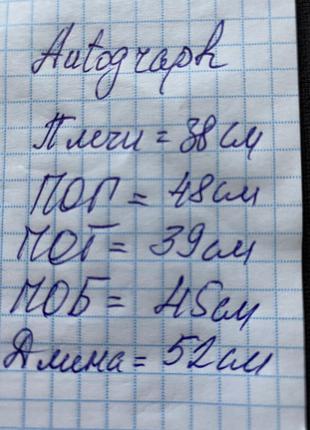 Autograph
Плечи = 38 см
ПОГ = 48 см
ПОТ = 39 см
ПОБ = 45 см
Длина = 52 см